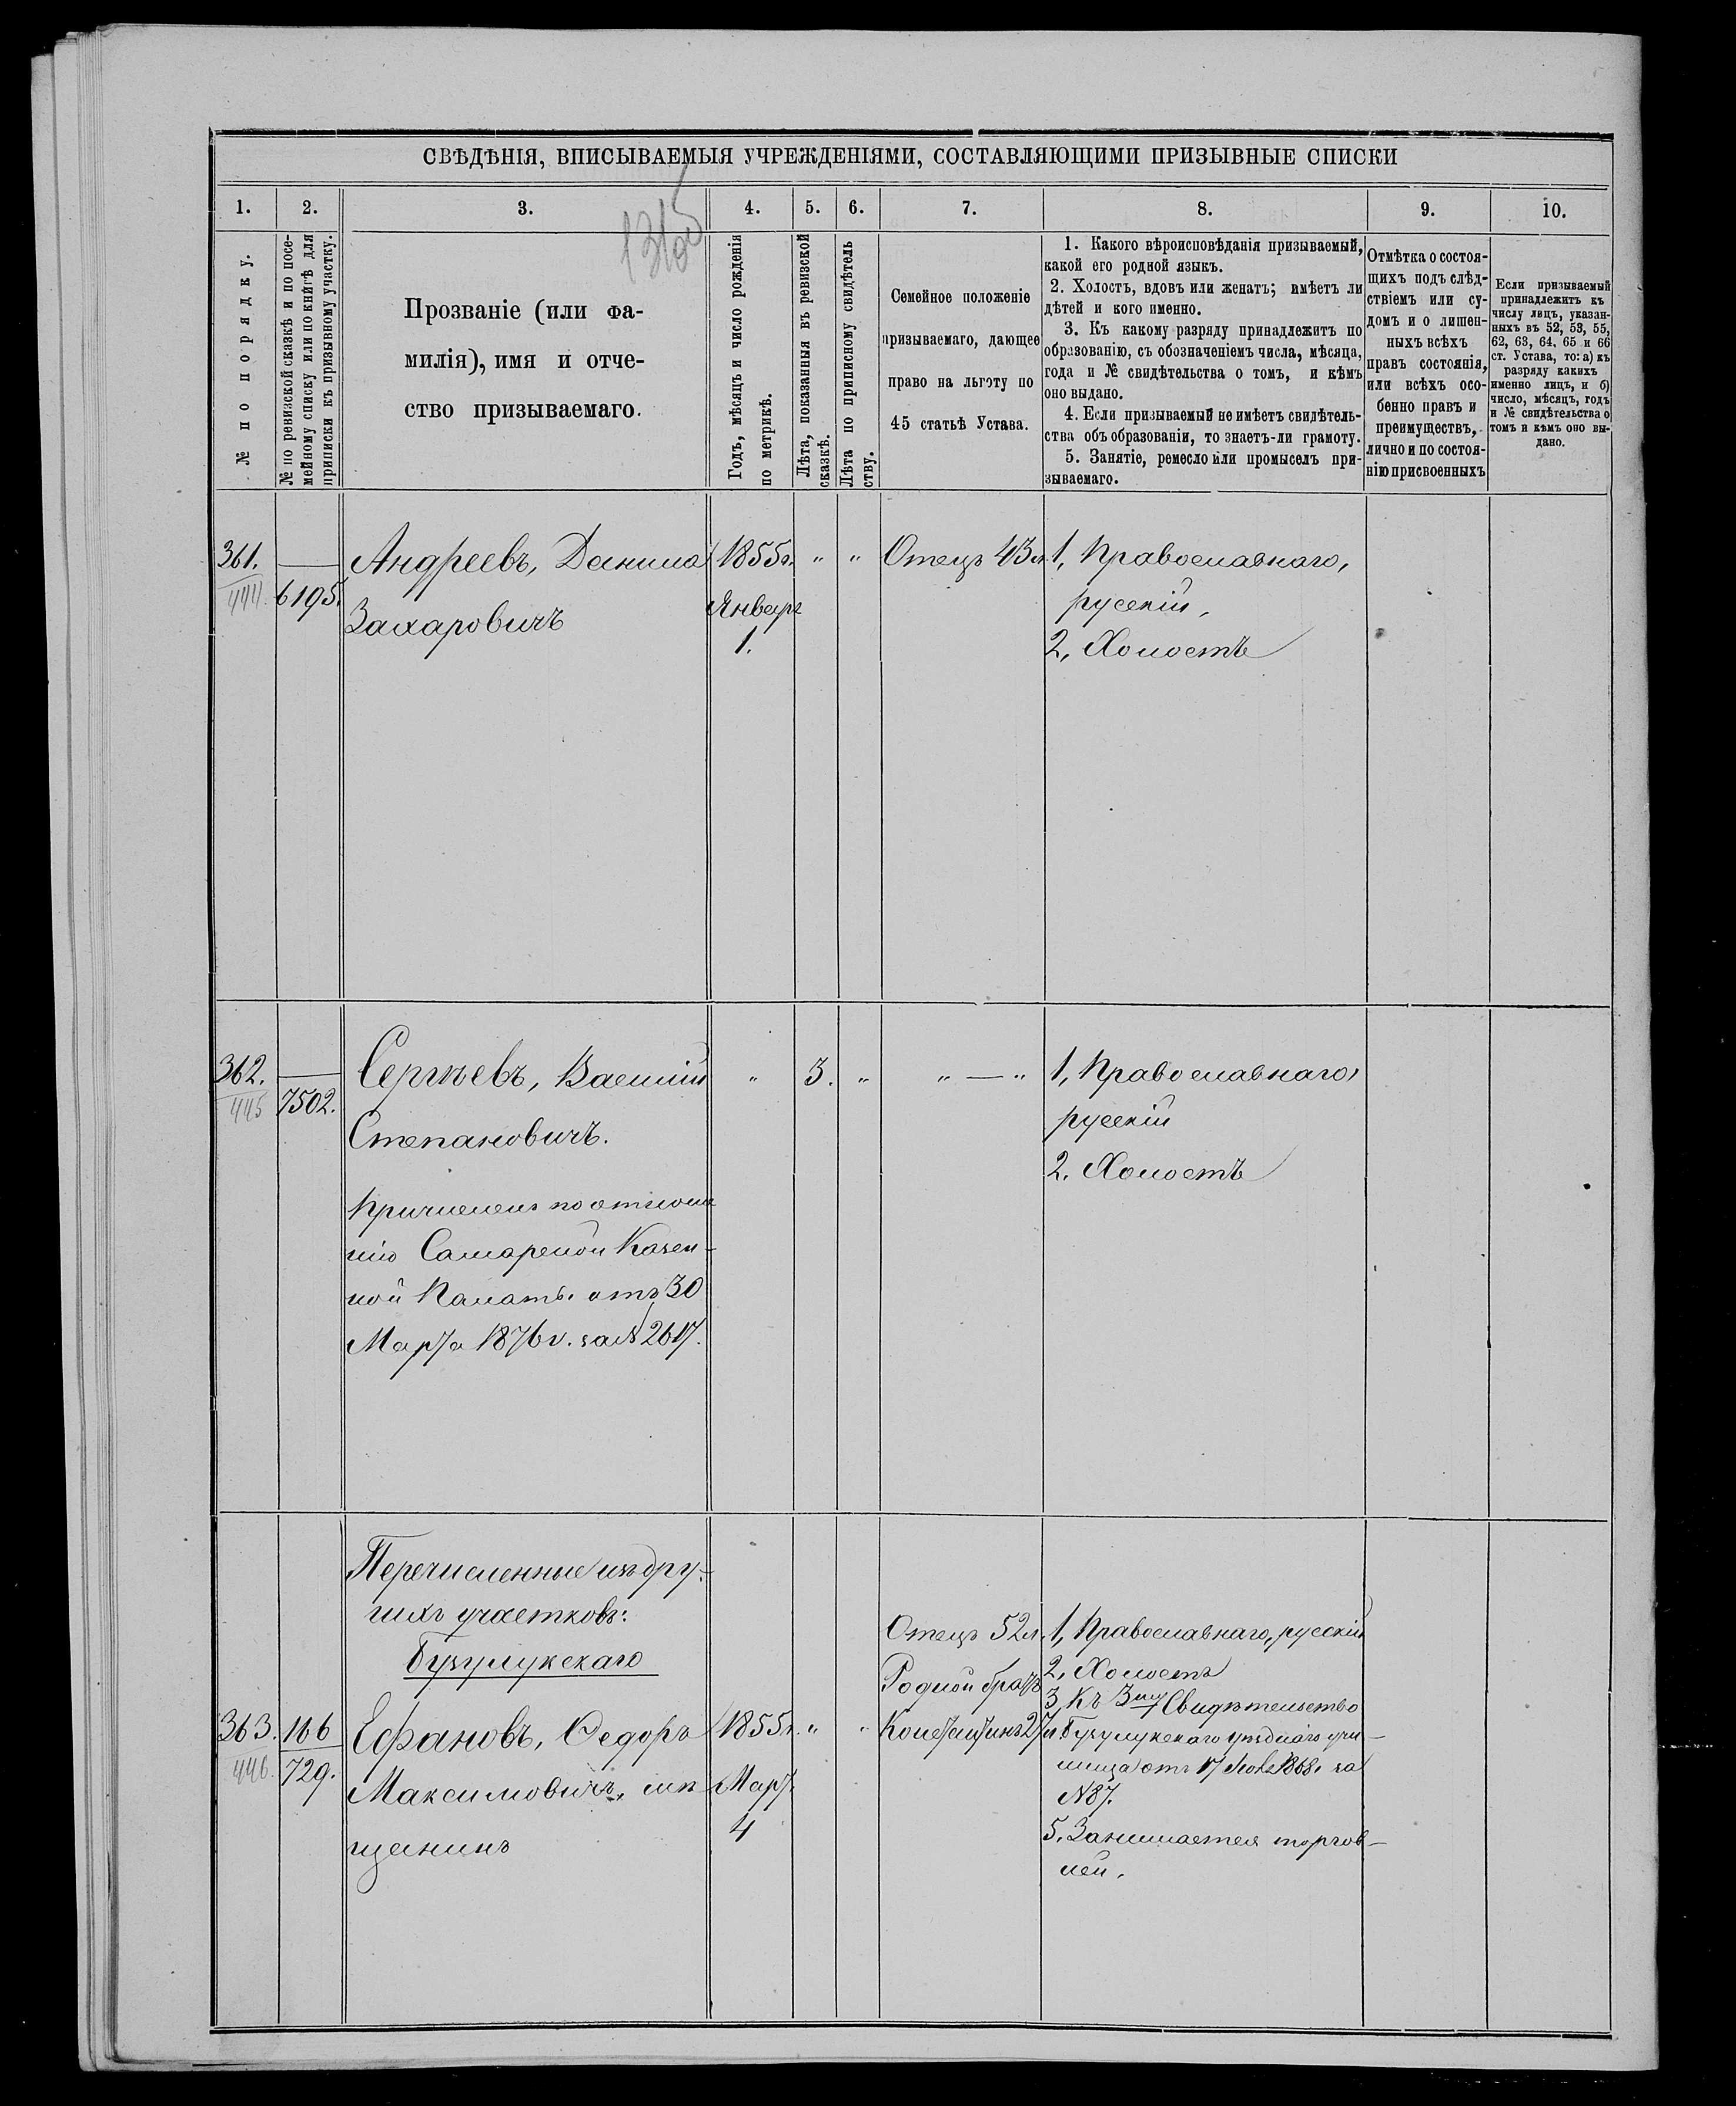 СВѢДѢНІЯ, ВПИСЫВАЕМЫЯ УЧРЕЖДЕНІЯМИ, СОСТАВЛЯЮЩИМИ ПРИЗЫВНЫЕ СПИСКИ
1.
2.
3.
4.
5.
6.
7.
8.
9.
10.
№ по порядку.
№ по ревизской сказкѣ и по посе-
мейному списку или по книгѣ для
приписки къ призывному участку.
Прозваніе (или фа-
милія), имя и отче-
ство призываемаго.
Годъ, мѣсяцъ и число рожденія
по метрикѣ.
Лѣта, показанныя въ ревизской
сказкѣ.
Лѣта по приписному свидѣтель
ству.
Семейное положеніе
призываемаго, дающее
право на льготу по
45 статьѣ Устава.
1. Какого вѣроисповѣданія призываемый,
какой его родной языкъ.
2. Холостъ, вдовъ или женатъ; имѣетъ ли
дѣтей и кого именно.
3. Къ какому разряду принадлежитъ по
образованію, съ обозначеніемъ числа, мѣсяца,
года и № свидѣтельства о томъ, и кѣмъ
оно выдано.
4. Если призываемый не имѣетъ свидѣтель-
ства объ образованіи, то знаетъ-ли грамоту.
5. Занятіе, ремесло или промыселъ при-
зываемаго.
Отмѣтка о состоя-
щихъ подъ слѣд-
ствіемъ или су-
домъ и о лишен-
ныхъ всѣхъ
правъ состоянія,
или всѣхъ осо-
бенно правъ и
преимуществъ,
лично и по состоя-
нію присвоенныхъ
Если призываемый
принадлежитъ къ
числу лицъ, указан-
ныхъ въ 52, 53, 55,
62, 63, 64, 65 и 66
ст. Устава, то: а) къ
разряду какихъ
именно лицъ, и б)
число, мѣсяцъ, годъ
и № свидѣтельства о
томъ и кѣмъ оно вы-
дано.
361.
444.
6195.
Андреевъ, Данила
Захаровичъ
1855г.
Январ
1.
" "
Отецъ 43 л.
1, Православнаго,
русскій,
2, Холостъ
362.
445
7502.
Сергѣевъ, Василій
Степановичъ.
Причисленъ по отноше
нію Самарской Казен-
ной Палаты отъ 30
Марта 1876 г. за № 2617.
"
3.
"
" — "
1, Православнаго,
русскій
2. Холостъ
Перечисленные изъ дру-
гихъ участковъ:
Бузулукскаго
363.
446.
166
729.
Ефановъ, Федоръ
Максимовичъ, мѣ
щанинъ
1855г.
Март.
4
" "
Отецъ 52 л.
Родной братъ
Константинъ 27 л.
1, Православнаго, русскій
2, Холостъ
3, Къ 3му Свидѣтельство
Бузулукскаго уѣзднаго учи-
лища отъ 17 1868 за
№ 87.
5. Занимается торгов-
лей.